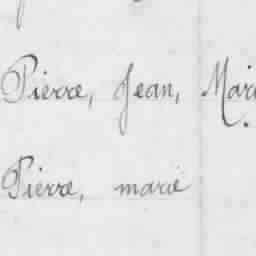 Pierre, Jean, Mari
Pierre, marie